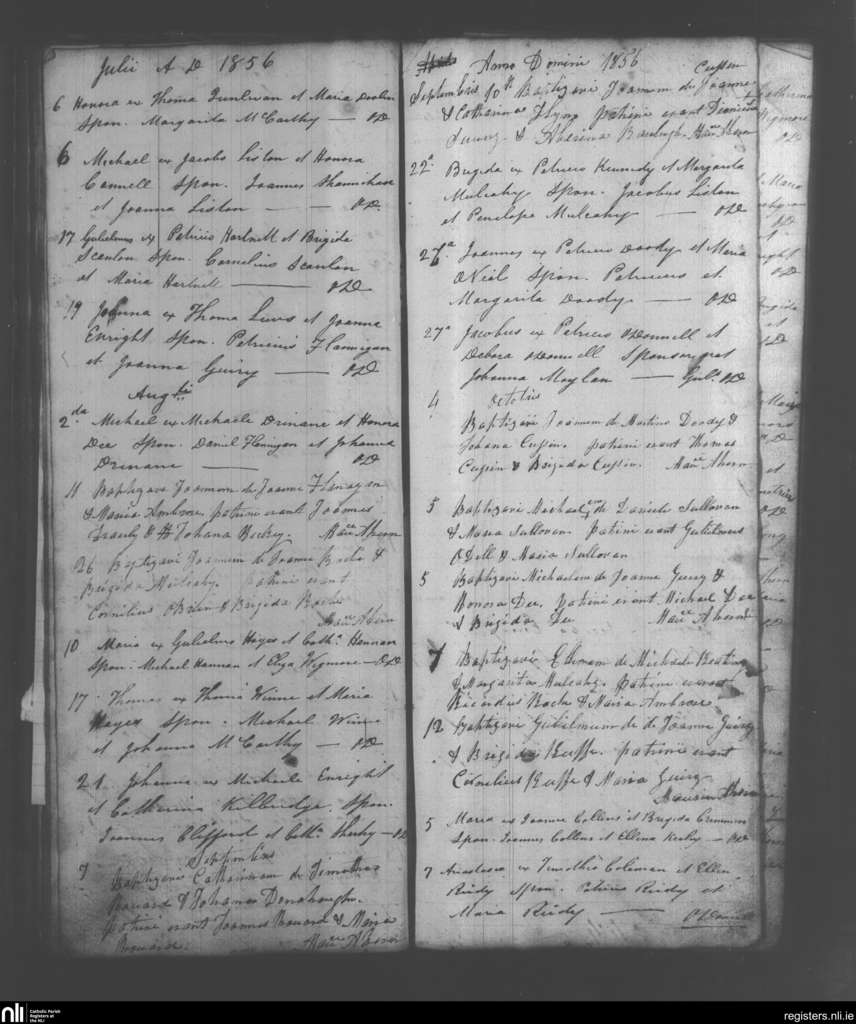 Julii A D 1856
6 Honora ex Thoma Qunlivan et Maria Doolin
Spon. Margarita McCarthy — OD
6 Michael ex Jacobo Liston et Honora
Connell Spon. Joannes Shannihan
et Joanna Liston — — OD.
17 Gulielmus ex Patricio Hartnett et Brigida
Scanlon Spon. Cornelius Scanlon
et Maria Hartnett — OD
19 Johanna ex Thoma et Joanna
Enright Spon. Patricius Flannigan
et Joanna Guiry — OD
Augti
2da Michael ex Michaele Drinane et Honora
Dee Spon. Daniel Flanigan et Johanna
Drinane — OD
11 Baptizavi Joannem de Joanne Flanagan
& Maria Ambrose patrini erant Joannes
& Johana Mauce Ahern
26 Baptizavi Joannem de Joanne Roche &
Brigida Mulcahy. patrini erant
Cornilius OBrien & Brigida Roche
Mauce Ahern
10 Maria ex Gulielmo Hayes et Catha Hannan
Spon. Michael Hannan et Eliza Wigmore — OD
17 Thomas ex Thoma Winne et Maria
Hayes Spon. Michael Winne
et Johanna McCarthy — OD
21. Johanna ex Michaele Enright
et Catherina Killeridge. Spon.
Joannes Clifford et Catha Sheehy — OD
Septembris
7 Baptizavi Catharinam de Timotheo
& Johanna Donohough.
patrini erant Joannes & Maria
Mauce Ahern
Anno Domini 1856
Cussen
Septembris 10th Baptizavi Joannem de Joanne
& Catharina Flynn patrini erant Dionisius
& Mauce Ahern
22a Brigida ex Patricio Kennedy et Margarita
Mulcahy Spon. Jacobus Liston
et Penelope Mulcahy — OD
27a Joannes ex Patricio Doody et Maria
ONeil Spon. Patricius et
Margarita Doody — OD
27a Jacobus ex Patricio ODonnell et
Debora ODonnell Sponsor erat
Johanna Moylan — Gul. OD
Octobris
4 Baptizavi Joannem de Martino Doody &
Johana Cussin. patrini erant Thomas
Cussin & Brigida Cussin. Mauce Ahern
5 Baptizavi Michaelem de Daniele Sullovan
& Maria Sullovan. patrini erant Gulielmus
ODell & Maria Sullovan
5 Baptizavi Michaelem de Joanne Guiry &
Honora Dee. patrini erant Michael Dee
& Brigida Dee Mauce Ahern
7 Baptizavi Ellenam de Michaele Beating
& Margarita Mulcahy. patrini erant
Ricardus Roche & Maria Ambrose
12 Baptizavi Gulielmum de de Joanne Guiry
& Brigida Ruffe. patrini erant
Cornelius Ruffe & Maria Guiry
Maurice Ahern
5 Maria ex Joanne Collins et Brigida Crimmin
Spon. Joannes Collins et Ellena Kirby — OD
7 Anastasia ex Timothio Coleman et Ellen
Riedy Spon. Patricius Riedy et
Maria Riedy — ODonnell
nli Catholic Parish
Registers at
the NLI
registers.nli.ie